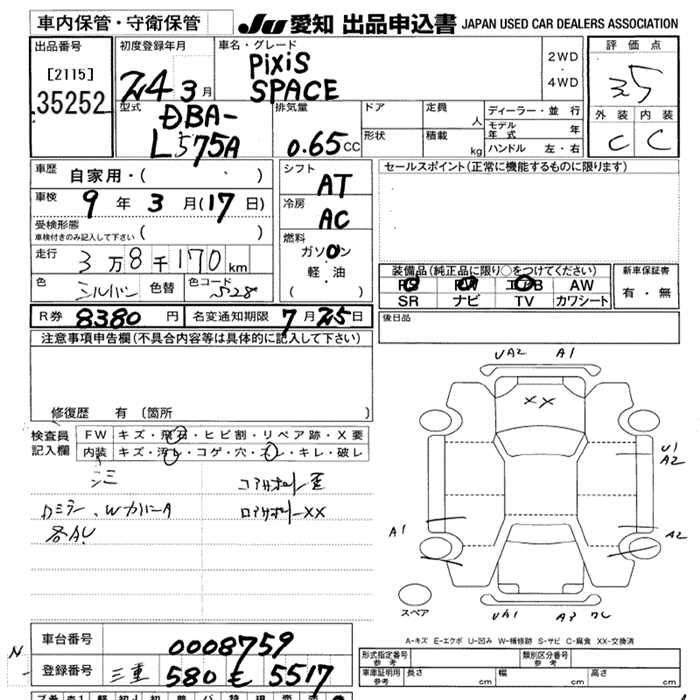 車内保管・守衛保管
JU 愛知 出品申込書 JAPAN USED CAR DEALERS ASSOCIATION
出品番号
[2115]
35252
初度登録年月
24 3月
車名・グレード
PIXIS
SPACE
2WD
・
4WD
評価点
3.5
外装 内装
C C
型式
DBA-
L575A
排気量
0.65 CC
ドア
形状
定員 人
積載 kg
ディーラー・並行
モデル年式 年
ハンドル 左・右
車歴
自家用・( )
車検
9年3月(17日)
受検形態
車検付きのみ記入して下さい ( )
走行
3万8千170km
色 シルバー 色替 色コード S28
シフト
AT
冷房
AC
燃料
ガソリン
軽・油
( )
セールスポイント(正常に機能するものに限ります)
装備品(純正品に限り○をつけてください)
PS PW エアB AW
SR ナビ TV カワシート
新車保証書
有・無
後日品
R券 8380円 名変通知期限 7月25日
注意事項申告欄(不具合内容等は具体的に記入して下さい)
修復歴 有 〔箇所 〕
検査員
記入欄
FW キズ・飛石・ヒビ割・リペア跡・X要
内装 キズ・汚レ・コゲ・穴・スレ・キレ・破レ
コアサポート歪
ロアサポートXX
各AU
UA2 A1
XX
U1
A2
A1
A2
スペア
UA1 A3
A-キズ E-エクボ U-凹み W-補修跡 S-サビ C-腐食 XX-交換済
車台番号 0008759
登録番号 三重 580 モ 5517
N
形式指定番号
参考
類別区分番号
参考
車庫証明用
参考
長さ cm 幅 cm 高さ cm